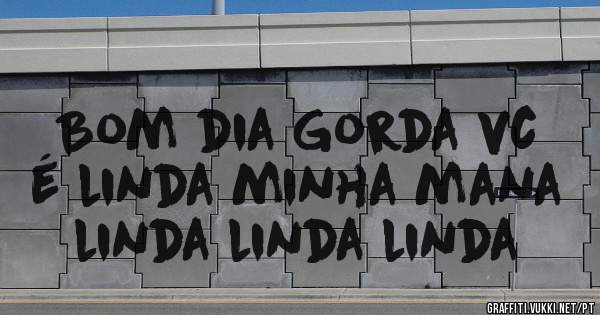 BOM DIA GORDA VC
É LINDA MINHA MANA
LINDA LINDA LINDA
GRAFFITI.VUKKI.NET/PT